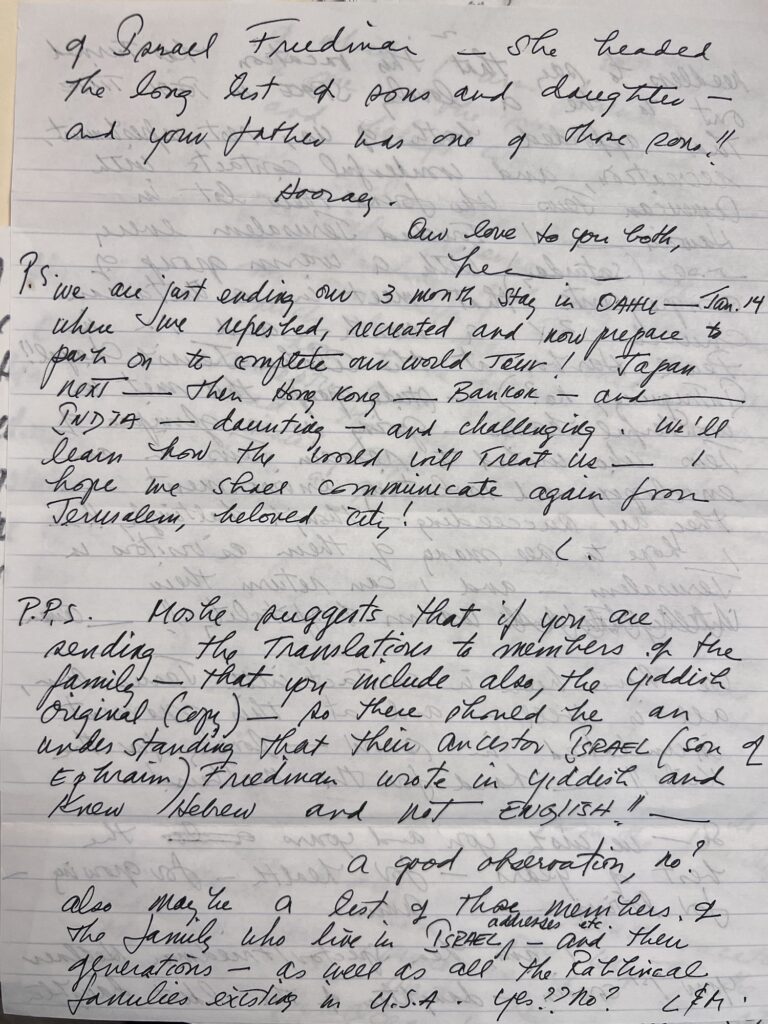 of Israel Friedman — She headed
the long list of sons and daughter —
and your father was one of those sons!!
Hooray.
Our love to you both,
P.S. we are just ending our 3 month stay in OAHU — Jan. 14
where we refreshed, recreated and now prepare to
push on to complete our world Tour! Japan
next — then Hong Kong — Bankok — and —
INDIA — daunting — and challenging. We'll
learn how the world will treat us — I
hope we shall communicate again from
Jerusalem, beloved city!
L.
P.P.S. Moshe suggests that if you are
sending the Translations to members of the
family — that you include also, the Yiddish
original (copy) — so there should be an
understanding that their ancestor ISRAEL (son of
Ephraim) Friedman wrote in Yiddish and
Knew Hebrew and not ENGLISH!! —
a good observation, no?
also maybe a list of those members of
the family who live in ISRAEL addresses etc. — and their
generations — as well as all the Rabbinical
families existing in U.S.A. Yes?? No? L&M.